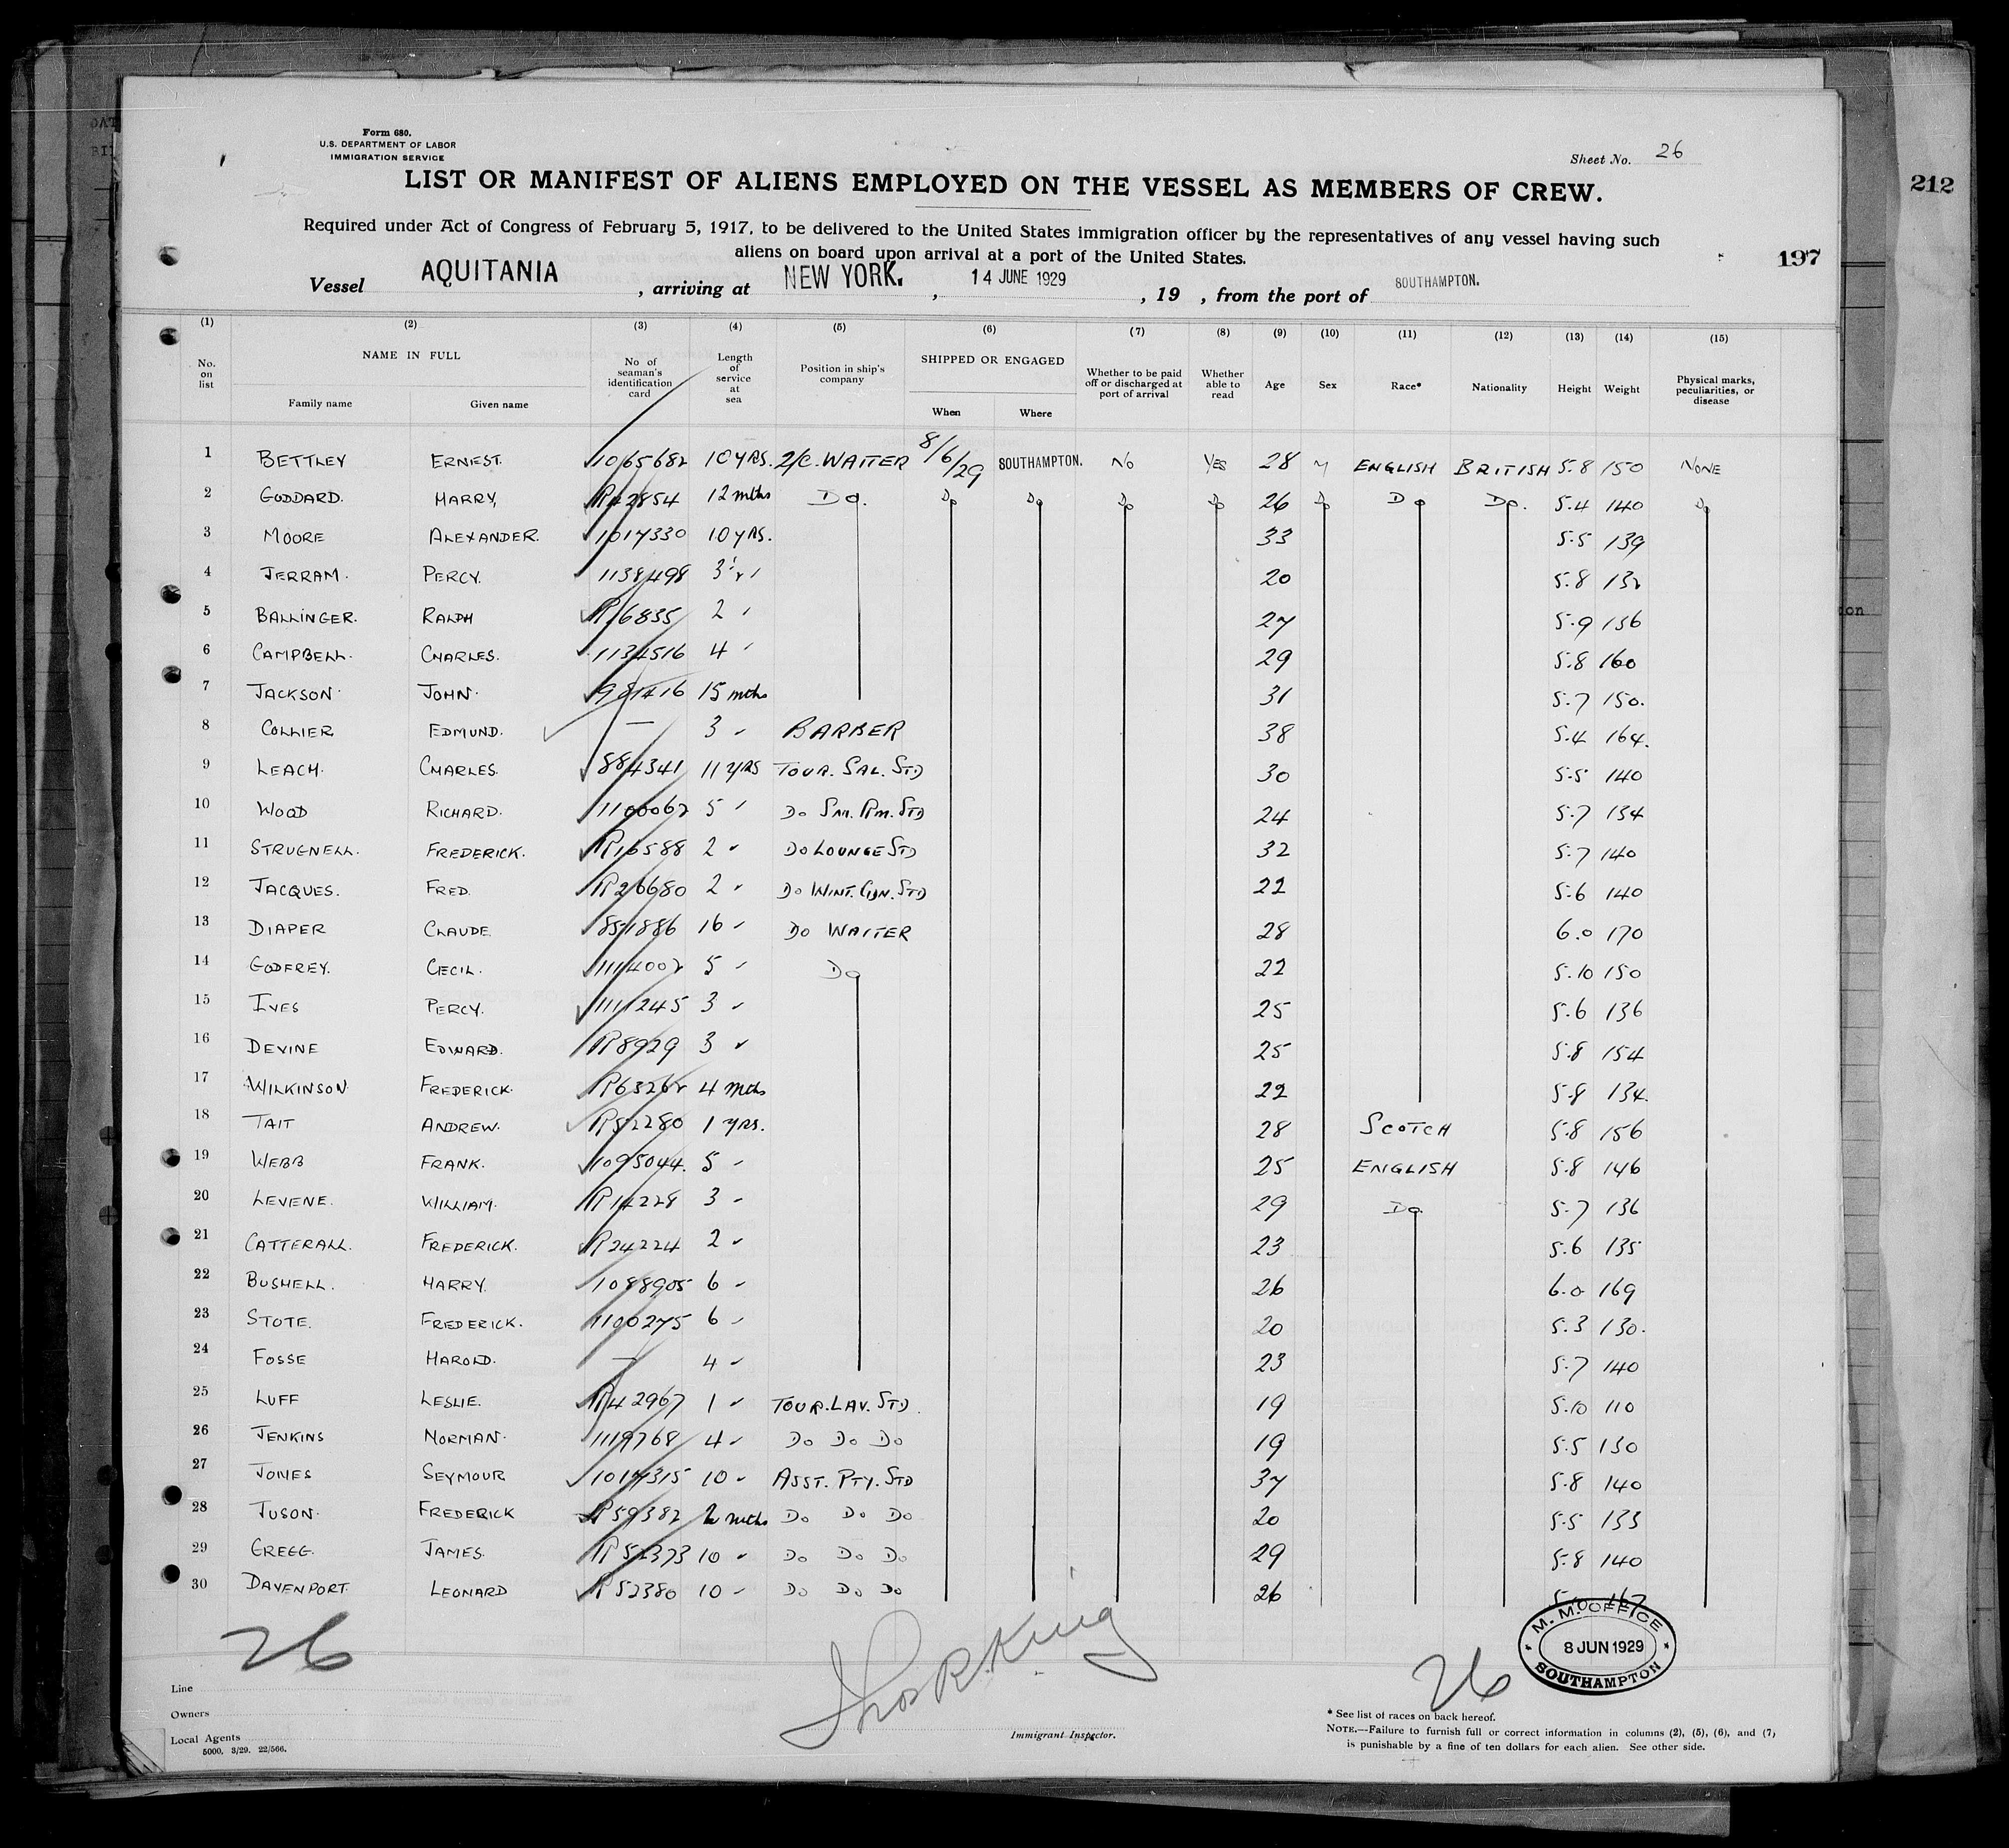 212
Form 680.
U.S. DEPARTMENT OF LABOR
IMMIGRATION SERVICE
Sheet No. 26
LIST OR MANIFEST OF ALIENS EMPLOYED ON THE VESSEL AS MEMBERS OF CREW.
Required under Act of Congress of February 5, 1917, to be delivered to the United States immigration officer by the representatives of any vessel having such
aliens on board upon arrival at a port of the United States.
197
Vessel AQUITANIA , arriving at NEW YORK. , 14 JUNE 1929 , 19 , from the port of SOUTHAMPTON.
(1) (2) (3) (4) (5) (6) (7) (8) (9) (10) (11) (12) (13) (14) (15)
No. on list NAME IN FULL Family name Given name No of seaman's identification card Length of service at sea Position in ship's company SHIPPED OR ENGAGED When Where Whether to be paid off or discharged at port of arrival Whether able to read Age Sex Race* Nationality Height Weight Physical marks, peculiarities, or disease
1 BETTLEY ERNEST. 1065682 10 YRS. 2/C. WAITER 8/6/29 SOUTHAMPTON. NO YES 28 M ENGLISH BRITISH 5.8 150 NONE
2 GODDARD. HARRY, R42854 12 mths Do. Do Do Do Do 26 Do Do Do. 5.4 140 Do
3 MOORE ALEXANDER. 1017330 10 YRS. 33 5.5 139
4 JERRAM. PERCY. 1138498 20 5.8 132
5 BALLINGER. RALPH R16835 2 " 27 5.9 136
6 CAMPBELL. CHARLES. 1134516 4 " 29 5.8 160
7 JACKSON. JOHN. 981416 15 mths 31 5.7 150.
8 COLLIER EDMUND. — 3 " BARBER 38 5.4 164.
9 LEACH. CHARLES. 884341 11 YRS TOUR. SAL. STD 30 5.5 140
10 WOOD RICHARD. 1100062 5 " Do SM. RM. STD 24 5.7 134
11 STRUGNELL. FREDERICK. R16588 2 " Do LOUNGE STD 32 5.7 140
12 JACQUES. FRED. R26680 2 " Do WINT. GDN. STD 22 5.6 140
13 DIAPER CLAUDE. 851886 16 " Do WAITER 28 6.0 170
14 GODFREY. CECIL. 1114002 5 " Do 22 5.10 150
15 IVES PERCY. 1111245 3 " 25 5.6 136
16 DEVINE EDWARD. R8929 3 " 25 5.8 154
17 WILKINSON FREDERICK. R63262 4 mths 22 5.8 134.
18 TAIT ANDREW. R52280 1 YRS. 28 SCOTCH 5.8 156
19 WEBB FRANK. 1095044. 5 " 25 ENGLISH 5.8 146
20 LEVENE. WILLIAM. R14228 3 " 29 Do 5.7 136
21 CATTERALL. FREDERICK. R24224 2 " 23 5.6 135
22 BUSHELL. HARRY. 1088905 6 " 26 6.0 169
23 STOTE. FREDERICK. 1100275 6 " 20 5.3 130.
24 FOSSE HAROLD. — 4 " 23 5.7 140
25 LUFF LESLIE. R42967 1 " TOUR. LAV. STD. 19 5.10 110
26 JENKINS NORMAN. 1119768 4 " Do Do Do 19 5.5 130
27 JONES SEYMOUR 1017315 10 " ASST. PTY. STD 37 5.8 140
28 JUSON. FREDERICK R59382 mths Do Do Do 20 5.5 133
29 GREGG. JAMES. R52373 10 " Do Do Do 29 5.8 140
30 DAVENPORT. LEONARD R52380 10 " Do Do Do 26 167
26
26
M. M. OFFICE
8 JUN 1929
SOUTHAMPTON
Line
Owners
Local Agents
5000. 3/29. 22/566.
Immigrant Inspector.
* See list of races on back hereof.
NOTE.—Failure to furnish full or correct information in columns (2), (5), (6), and (7),
is punishable by a fine of ten dollars for each alien. See other side.